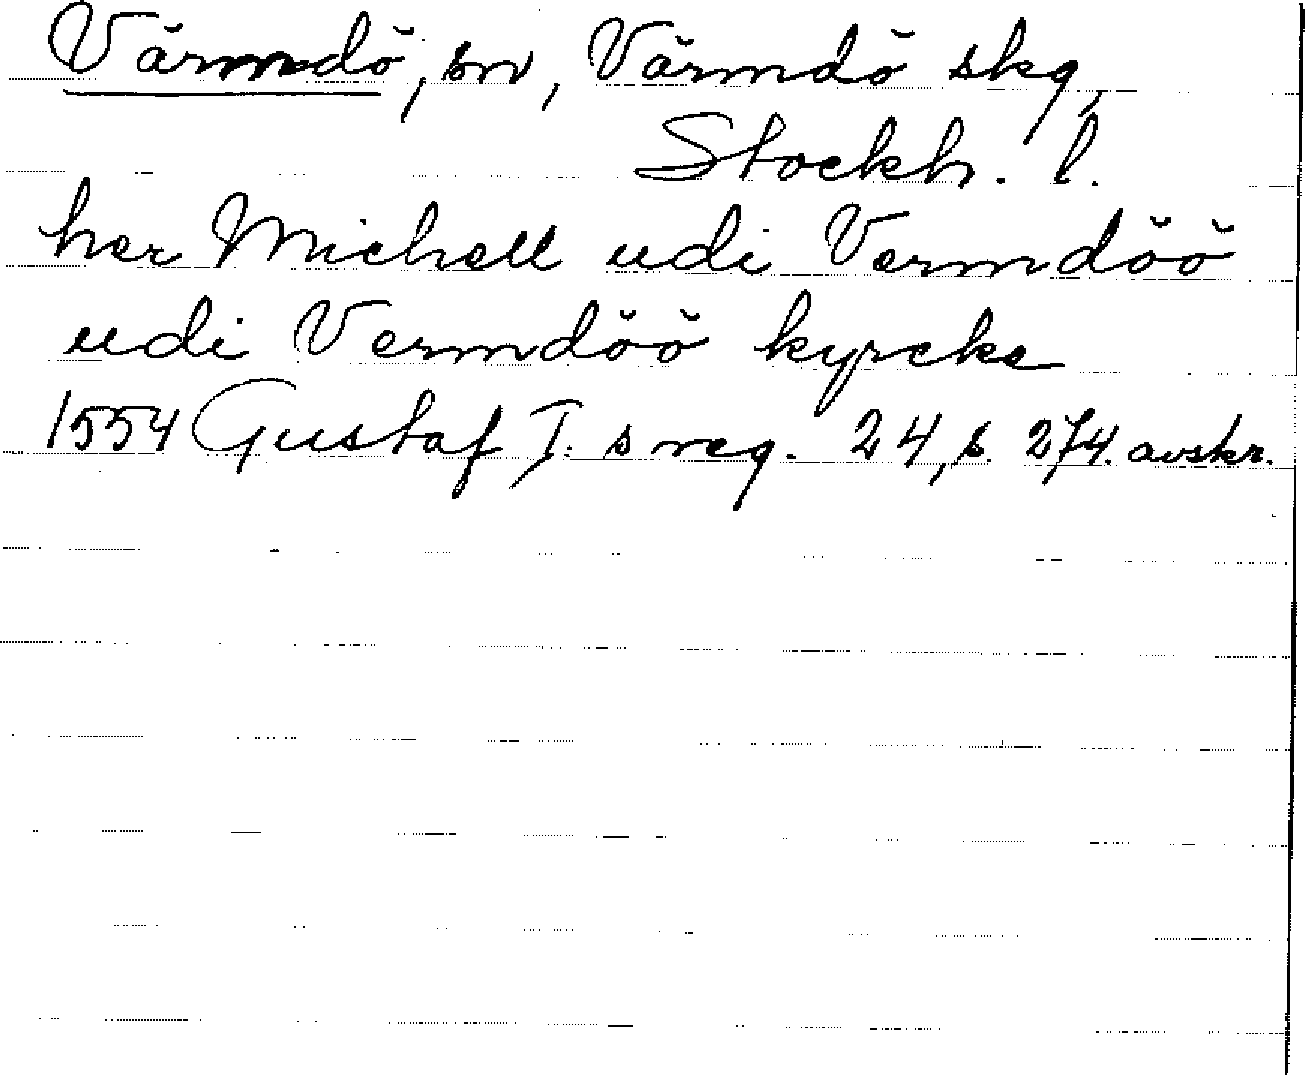 Värmdö, sn, Värmdö skg,
Stockh. l.
her Michell udi Vermdöö
udi Vermdöö kyrcke
1554 Gustaf I:s reg. 24, s. 274. avskr.